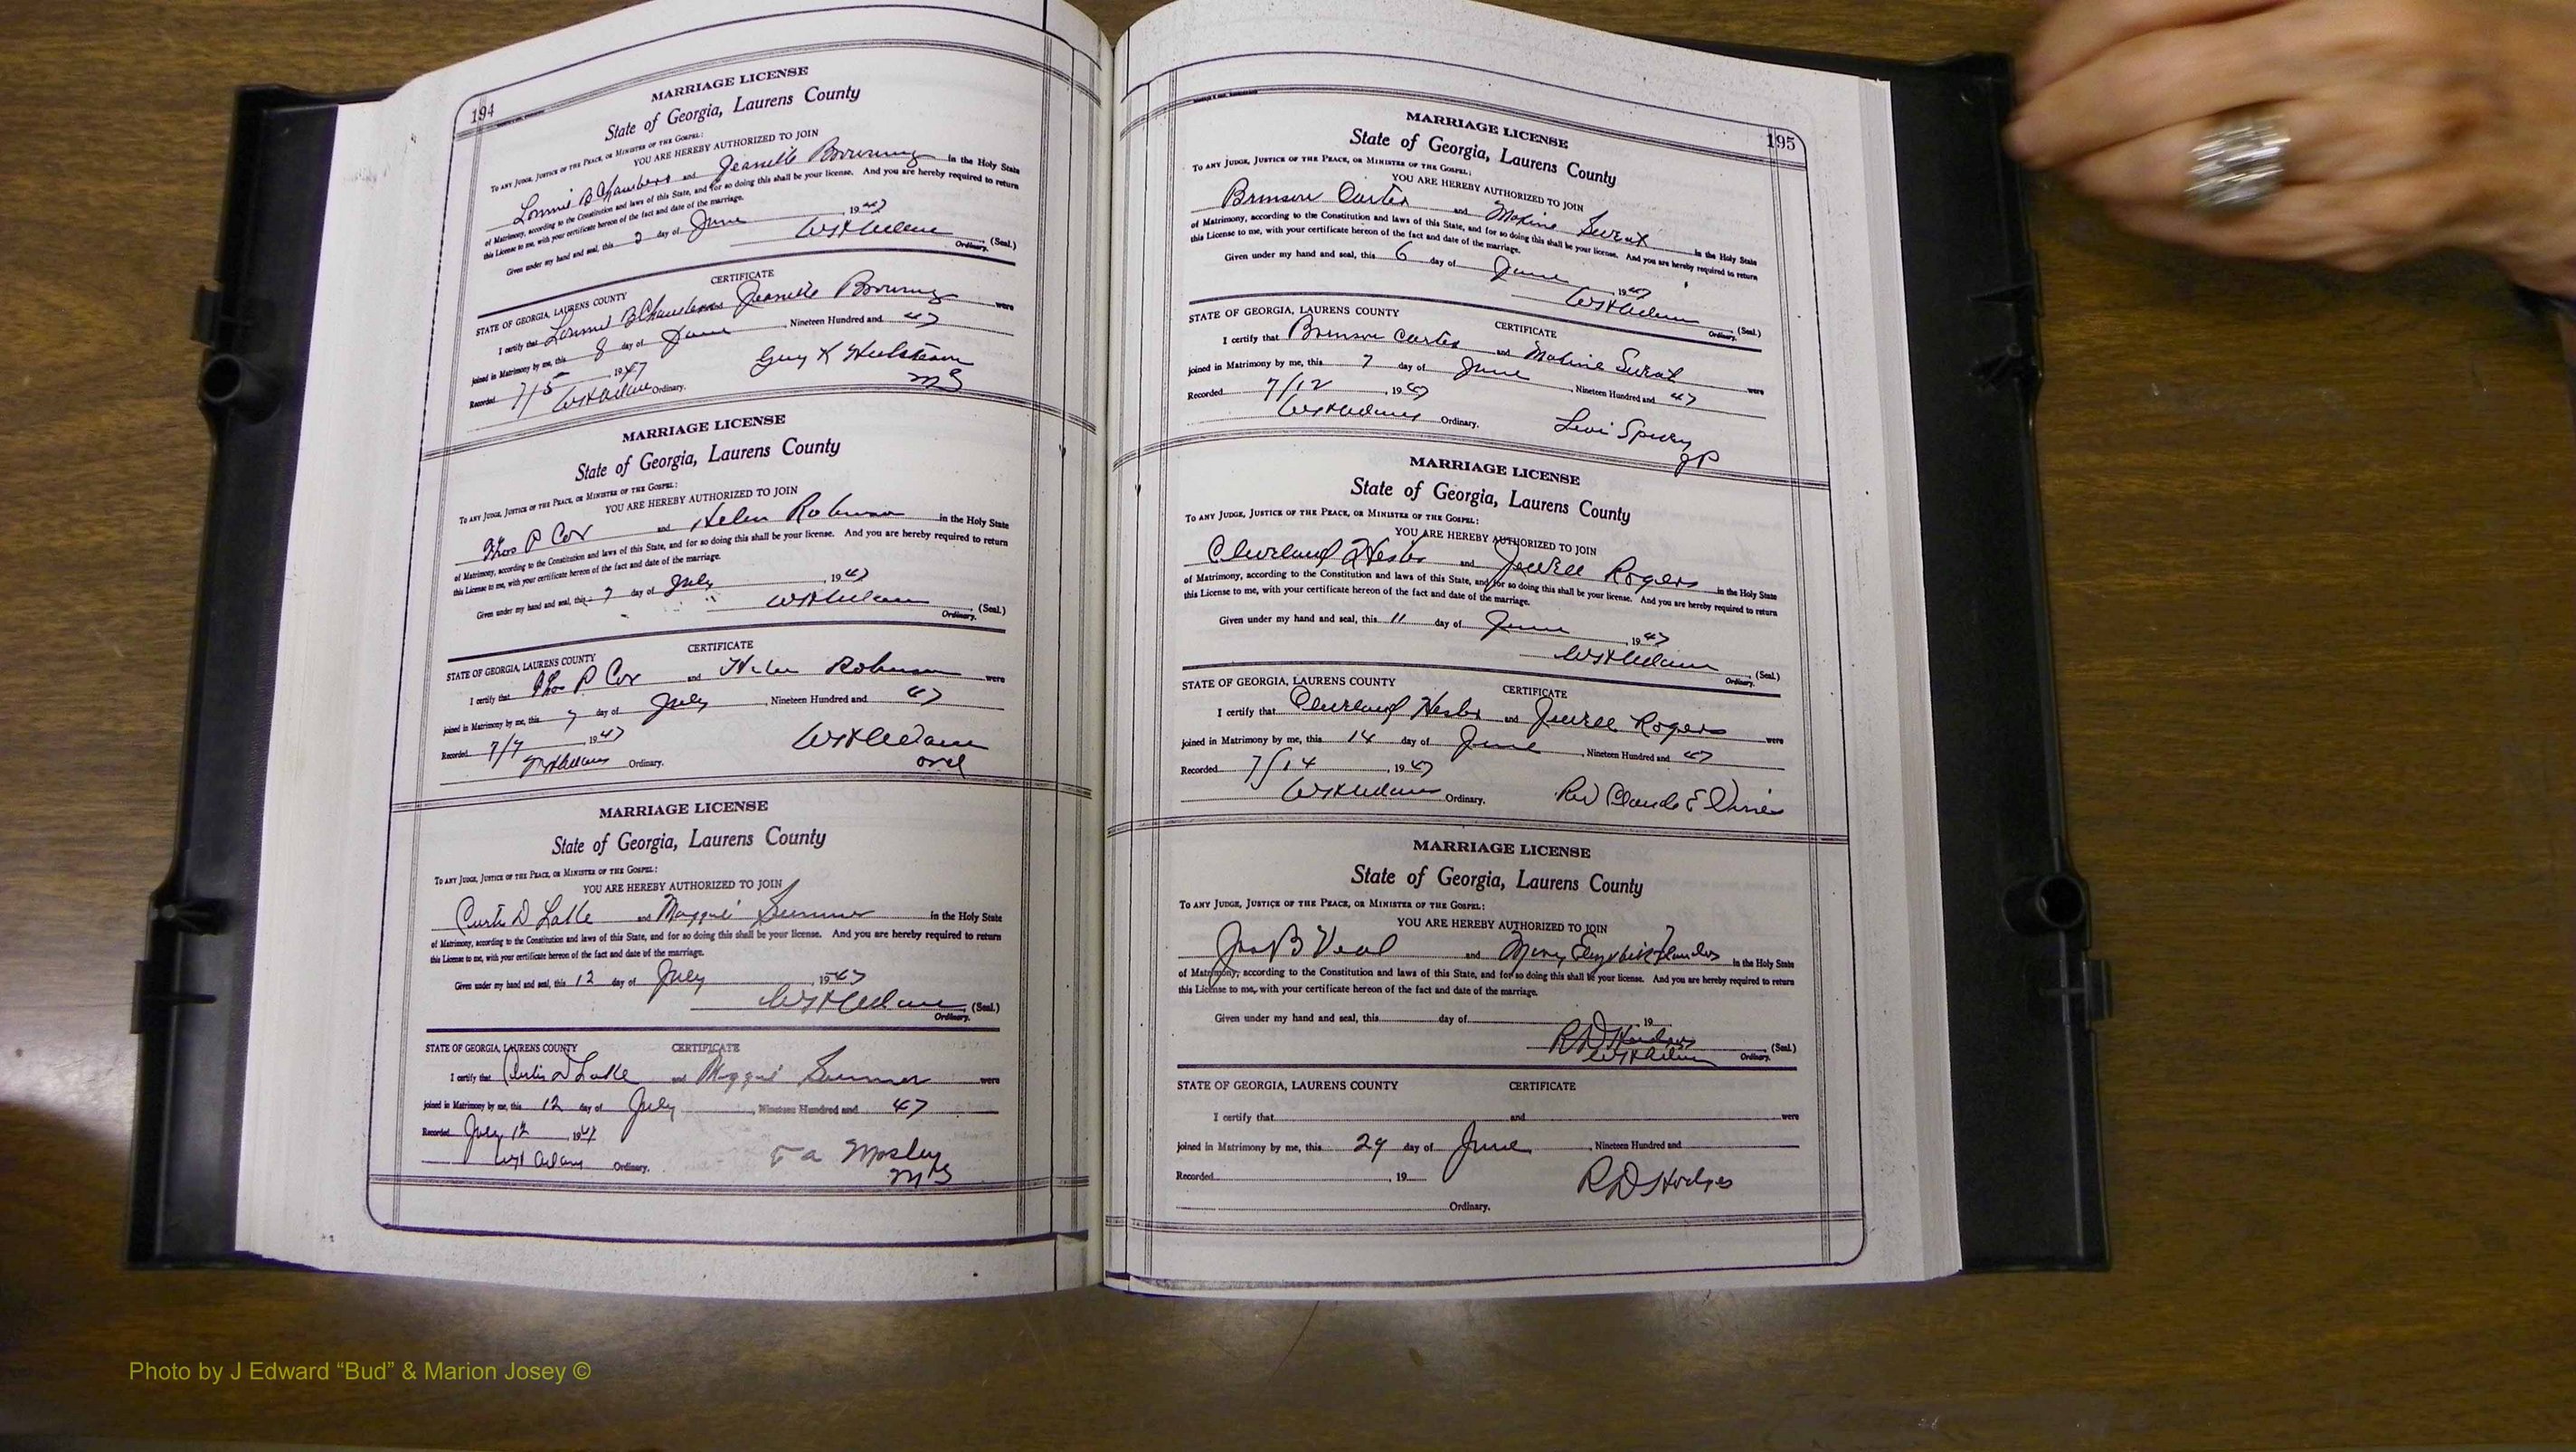 194
MARRIAGE LICENSE
State of Georgia, Laurens County
To any Judge, Justice of the Peace, or Minister of the Gospel:
YOU ARE HEREBY AUTHORIZED TO JOIN
Lonnie B Chambers and Jeanette Browning in the Holy State
of Matrimony, according to the Constitution and laws of this State, and for so doing this shall be your license. And you are hereby required to return
this License to me, with your certificate hereon of the fact and date of the marriage.
Given under my hand and seal, this 2 day of June, 1947
(Seal.)
Ordinary.
CERTIFICATE
STATE OF GEORGIA, LAURENS COUNTY
I certify that Lonnie B Chambers Jeanette Browning were
joined in Matrimony by me, this 8 day of June, Nineteen Hundred and 47
Recorded 7/5 1947 Guy K
Ordinary. MG
MARRIAGE LICENSE
State of Georgia, Laurens County
To any Judge, Justice of the Peace, or Minister of the Gospel:
YOU ARE HEREBY AUTHORIZED TO JOIN
Thos P Cox and Helen Robinson in the Holy State
of Matrimony, according to the Constitution and laws of this State, and for so doing this shall be your license. And you are hereby required to return
this License to me, with your certificate hereon of the fact and date of the marriage.
Given under my hand and seal, this 7 day of July, 1947
(Seal.)
Ordinary.
CERTIFICATE
STATE OF GEORGIA, LAURENS COUNTY
I certify that Thos P Cox and Helen Robinson were
joined in Matrimony by me, this 7 day of July, Nineteen Hundred and 47
Recorded 7/7 1947
Ordinary. ord
MARRIAGE LICENSE
State of Georgia, Laurens County
To any Judge, Justice of the Peace, or Minister of the Gospel:
YOU ARE HEREBY AUTHORIZED TO JOIN
Curtis D and Maggie Sumner in the Holy State
of Matrimony, according to the Constitution and laws of this State, and for so doing this shall be your license. And you are hereby required to return
this License to me, with your certificate hereon of the fact and date of the marriage.
Given under my hand and seal, this 12 day of July, 1947
(Seal.)
Ordinary.
STATE OF GEORGIA, LAURENS COUNTY CERTIFICATE
I certify that Curtis D and Maggie Sumner were
joined in Matrimony by me, this 12 day of July, Nineteen Hundred and 47
Recorded July 12, 1947
Mosley
Ordinary. MG
195
MARRIAGE LICENSE
State of Georgia, Laurens County
To any Judge, Justice of the Peace, or Minister of the Gospel:
YOU ARE HEREBY AUTHORIZED TO JOIN
Brinson Carter and in the Holy State
of Matrimony, according to the Constitution and laws of this State, and for so doing this shall be your license. And you are hereby required to return
this License to me, with your certificate hereon of the fact and date of the marriage.
Given under my hand and seal, this 6 day of June, 1947
(Seal.)
Ordinary.
STATE OF GEORGIA, LAURENS COUNTY CERTIFICATE
I certify that Brinson Carter and were
joined in Matrimony by me, this 7 day of June, Nineteen Hundred and 47
Recorded 7/12, 1947
Ordinary. Levi Spivey
JP
MARRIAGE LICENSE
State of Georgia, Laurens County
To any Judge, Justice of the Peace, or Minister of the Gospel:
YOU ARE HEREBY AUTHORIZED TO JOIN
Cleveland and Jewell Rogers in the Holy State
of Matrimony, according to the Constitution and laws of this State, and for so doing this shall be your license. And you are hereby required to return
this License to me, with your certificate hereon of the fact and date of the marriage.
Given under my hand and seal, this 11 day of June, 1947
(Seal.)
Ordinary.
STATE OF GEORGIA, LAURENS COUNTY CERTIFICATE
I certify that Cleveland and Jewell Rogers were
joined in Matrimony by me, this 14 day of June, Nineteen Hundred and 47
Recorded 7/14, 1947
Ordinary. Rev Claude E
MARRIAGE LICENSE
State of Georgia, Laurens County
To any Judge, Justice of the Peace, or Minister of the Gospel:
YOU ARE HEREBY AUTHORIZED TO JOIN
Jas B Veal and Mary Elizabeth Flanders in the Holy State
of Matrimony, according to the Constitution and laws of this State, and for so doing this shall be your license. And you are hereby required to return
this License to me, with your certificate hereon of the fact and date of the marriage.
Given under my hand and seal, this day of 19
R D Hodges (Seal.)
Ordinary.
STATE OF GEORGIA, LAURENS COUNTY CERTIFICATE
I certify that and were
joined in Matrimony by me, this 29 day of June, Nineteen Hundred and
Recorded , 19 R D Hodges
Ordinary.
Photo by J Edward “Bud” & Marion Josey ©